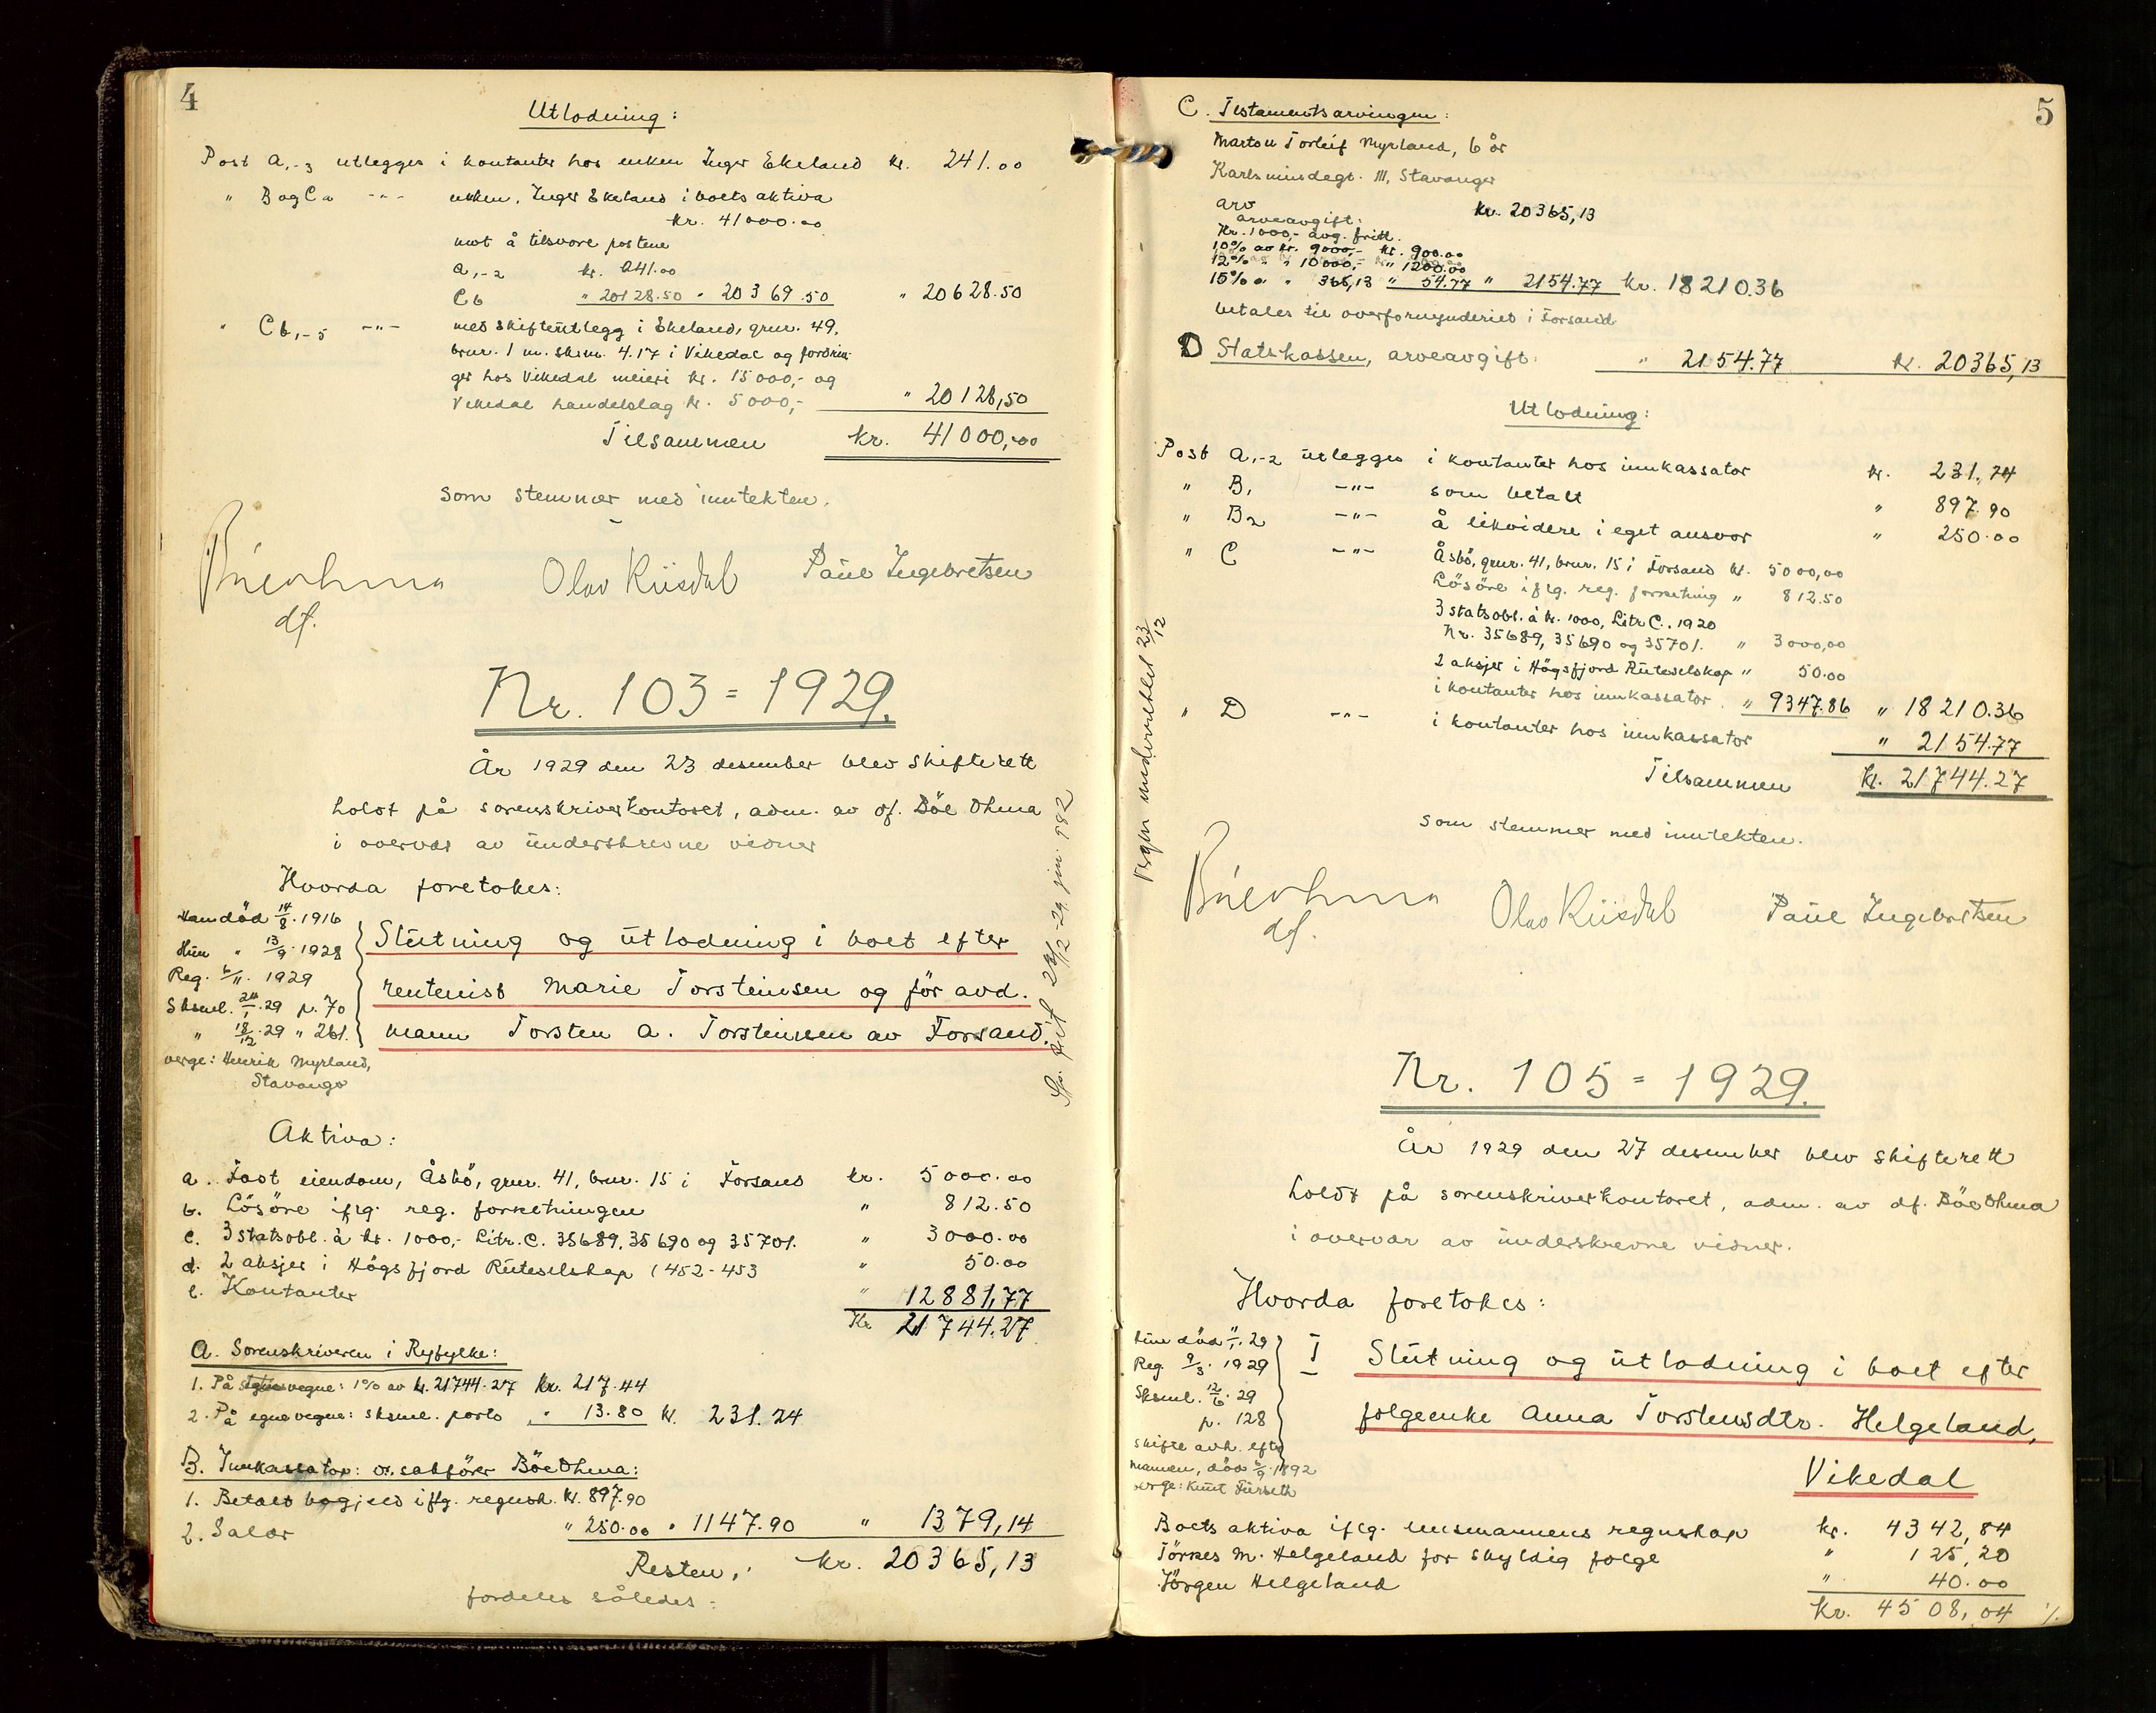 4
Utlodning:
Post A,-3 utlegges i kontanter hos enken Inger Ekeland kr. 241.00
" B og Ca -"- enken, Inger Ekeland i boets aktiva
kr. 41000.00
mot å tilsvare postene
a,-2 kr. 241.00
Cb " 20128.50 " 20369.50 " 20628.50
" Cb,-5 -"- med skifteutlegg i Ekeland, grnr. 49,
brnr. 1 m. skm. 4.17 i Vikedal og fordrin-
ger hos Vikedal meieri kr. 15000,- og
Vikedal handelslag kr. 5000,- " 20128,50
Tilsammen kr. 41000,00
som stemmer med inntekten.
Böe Ohma Olav Riisdal Paul Ingebretsen
df.
Nr. 103 = 1929.
År 1929 den 23 desember blev skifterett
holdt på sorenskriverkontoret, adm. av df. Böe Ohma
i overvær av underskrevne vidner
Hvorda foretokes:
Han död 14/8. 1916
Hun " 13/9. 1928
Reg. 6/11. 1929
Sksml. 24/1.29 p. 70
" 18/12.29 " 261.
verge: Henrik Myrland,
Stavanger
Slutning og utlodning i boet efter
rentenist Marie Torsteinsen og för avd.
mann Torsten A. Torsteinsen av Forsand.
Aktiva:
a. Fast eiendom, Åsbö, grnr. 41, brnr. 15 i Forsand kr. 5000.00
b. Lösöre iflg. reg. forretningen " 812.50
c. 3 statsobl. à kr. 1000,- Litr. C. 35689, 35690 og 35701. " 3000.00
d. 2 aksjer i Högsfjord Ruteselskap (452-453 " 50.00
e. Kontanter " 12881,77
Kr 21744.27
A. Sorenskriveren i Ryfylke:
1. På statens vegne: 1% av kr. 21744.27 kr. 217.44
2. På egne vegne: sksml. porto " 13.80 kr. 231.24
B. Innkassator: o.r.sakförer Böe Ohma:
1. Betalt bogjeld iflg. regnsk. kr. 897.90
2. Salær " 250.00 " 1147.90 " 1379,14
Resten, kr. 20365,13
fordeles således:
5
C. Testamentsarvingen:
Marton Torleif Myrland, 6 år
Karlsminnegt. 111, Stavanger
arv kr. 20365,13
arveavgift:
Kr. 1000,- avg. fritt.
10% av kr. 9000,- kr. 900.00
12% " " 10000,- " 1200.00
15% " " 365,13 " 54.77 " 2154.77 kr. 18210.36
betales til overformynderiet i Forsand
D Statskassen, arveavgift. " 2154.77 kr. 20365,13
Utlodning:
Post A,-2 utlegges i kontanter hos innkassator kr. 231,24
" B, -"- som betalt " 897.90
" B2 -"- å likvidere i eget ansvar " 250.00
" C -"- Åsbö, grnr. 41, brnr. 15 i Forsand kr. 5000,00
Lösöre iflg. reg. forretning " 812.50
3 statsobl. à kr. 1000, Litr C. 1920
Nr. 35689, 35690 og 35701. " 3000,00
2 aksjer i Högsfjord Ruteselskap " 50.00
i kontanter hos innkassator " 9347.86 " 18210.36
" D -"- i kontanter hos innkassator " 2154.77
Tilsammen kr. 21744.27
som stemmer med inntekten.
Böe Ohma Olav Riisdal Paul Ingebretsen
df.
Nr. 105 = 1929.
År 1929 den 27 desember blev skifterett
holdt på sorenskriverkontoret, adm. av df. Böe Ohma
i overvær av underskrevne vidner.
Hvorda foretokes:
Hun död 11/1. 29
Reg. 9/3. 1929
Sksml. 12/6. 29
p. 128
skifte avh. efter
mannen, död 6/9. 1892
verge: Knut Furseth
I Slutning og utlodning i boet efter
folgeenke Anna Torstensdtr. Helgeland,
Vikedal
Boets aktiva iflg. lensmannens regnskap kr. 4342,84
Törres M. Helgeland for skyldig folge " 125,20
Jörgen Helgeland " 40.00
kr. 4508,04 ./.